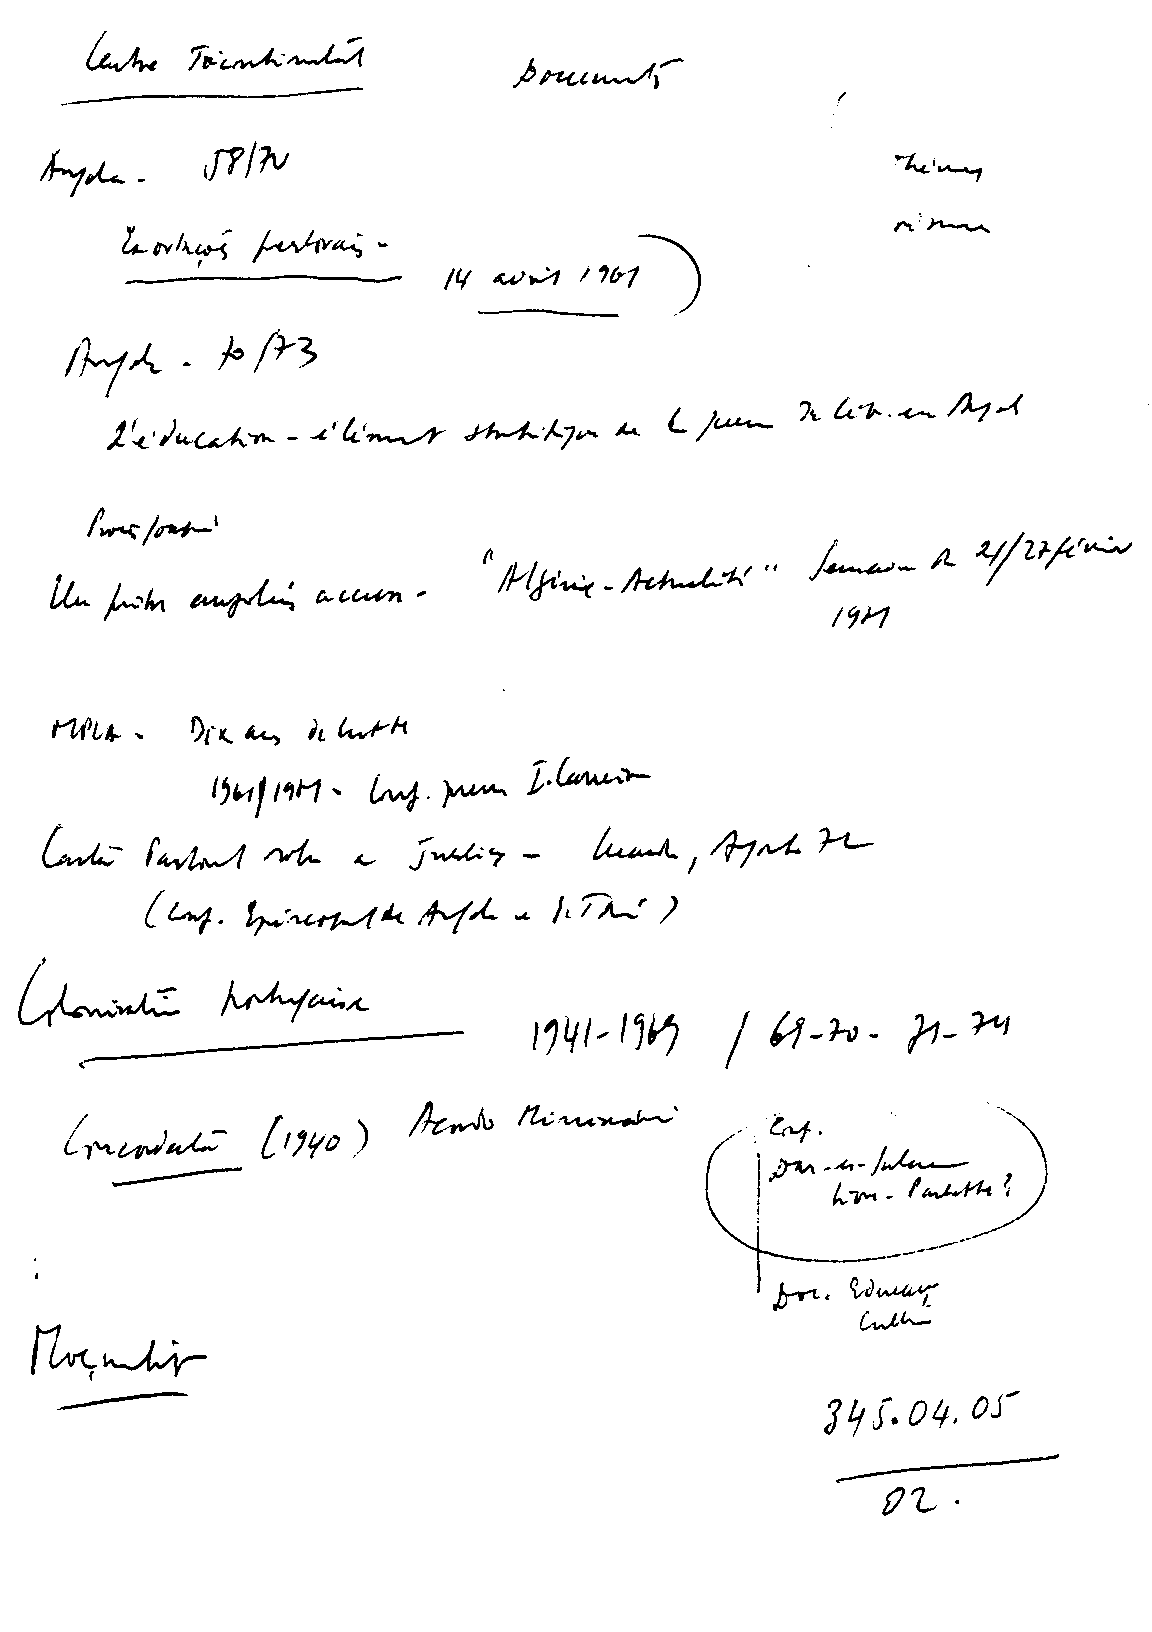 Centre Tricontinental
Documents
Angola - 58/70
Thèmes
Exortações pastorais -
14 avril 1961
Angola - 70/73
L'éducation - élément stratégique de la guerre de lib. en Angol
Un prêtre angolais accuse - "Algérie-Actualité" Semaine du 21/27 février
1971
MPLA - Dix ans de lutte
1961/1971 - Conf. presse I. Carreira
Carta Pastoral sobre a justiça - Luanda, Agosto 72
(Conf. Episcopal de Angola e S. Tomé)
Colonisation portugaise
1941-1969 / 69-70-71-74
Concordata (1940) Acordo Missionário
Conf.
Dar-es-Salam
Doc. Educaç
Cultu
Moçambiq
345.04.05
02.